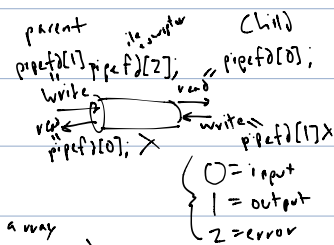 parent Child
pipefd[1] pipefd[2]; pipefd[0];
write read
read write
pipefd[0]; X pipefd[1] X
0 = input
1 = output
2 = error
array